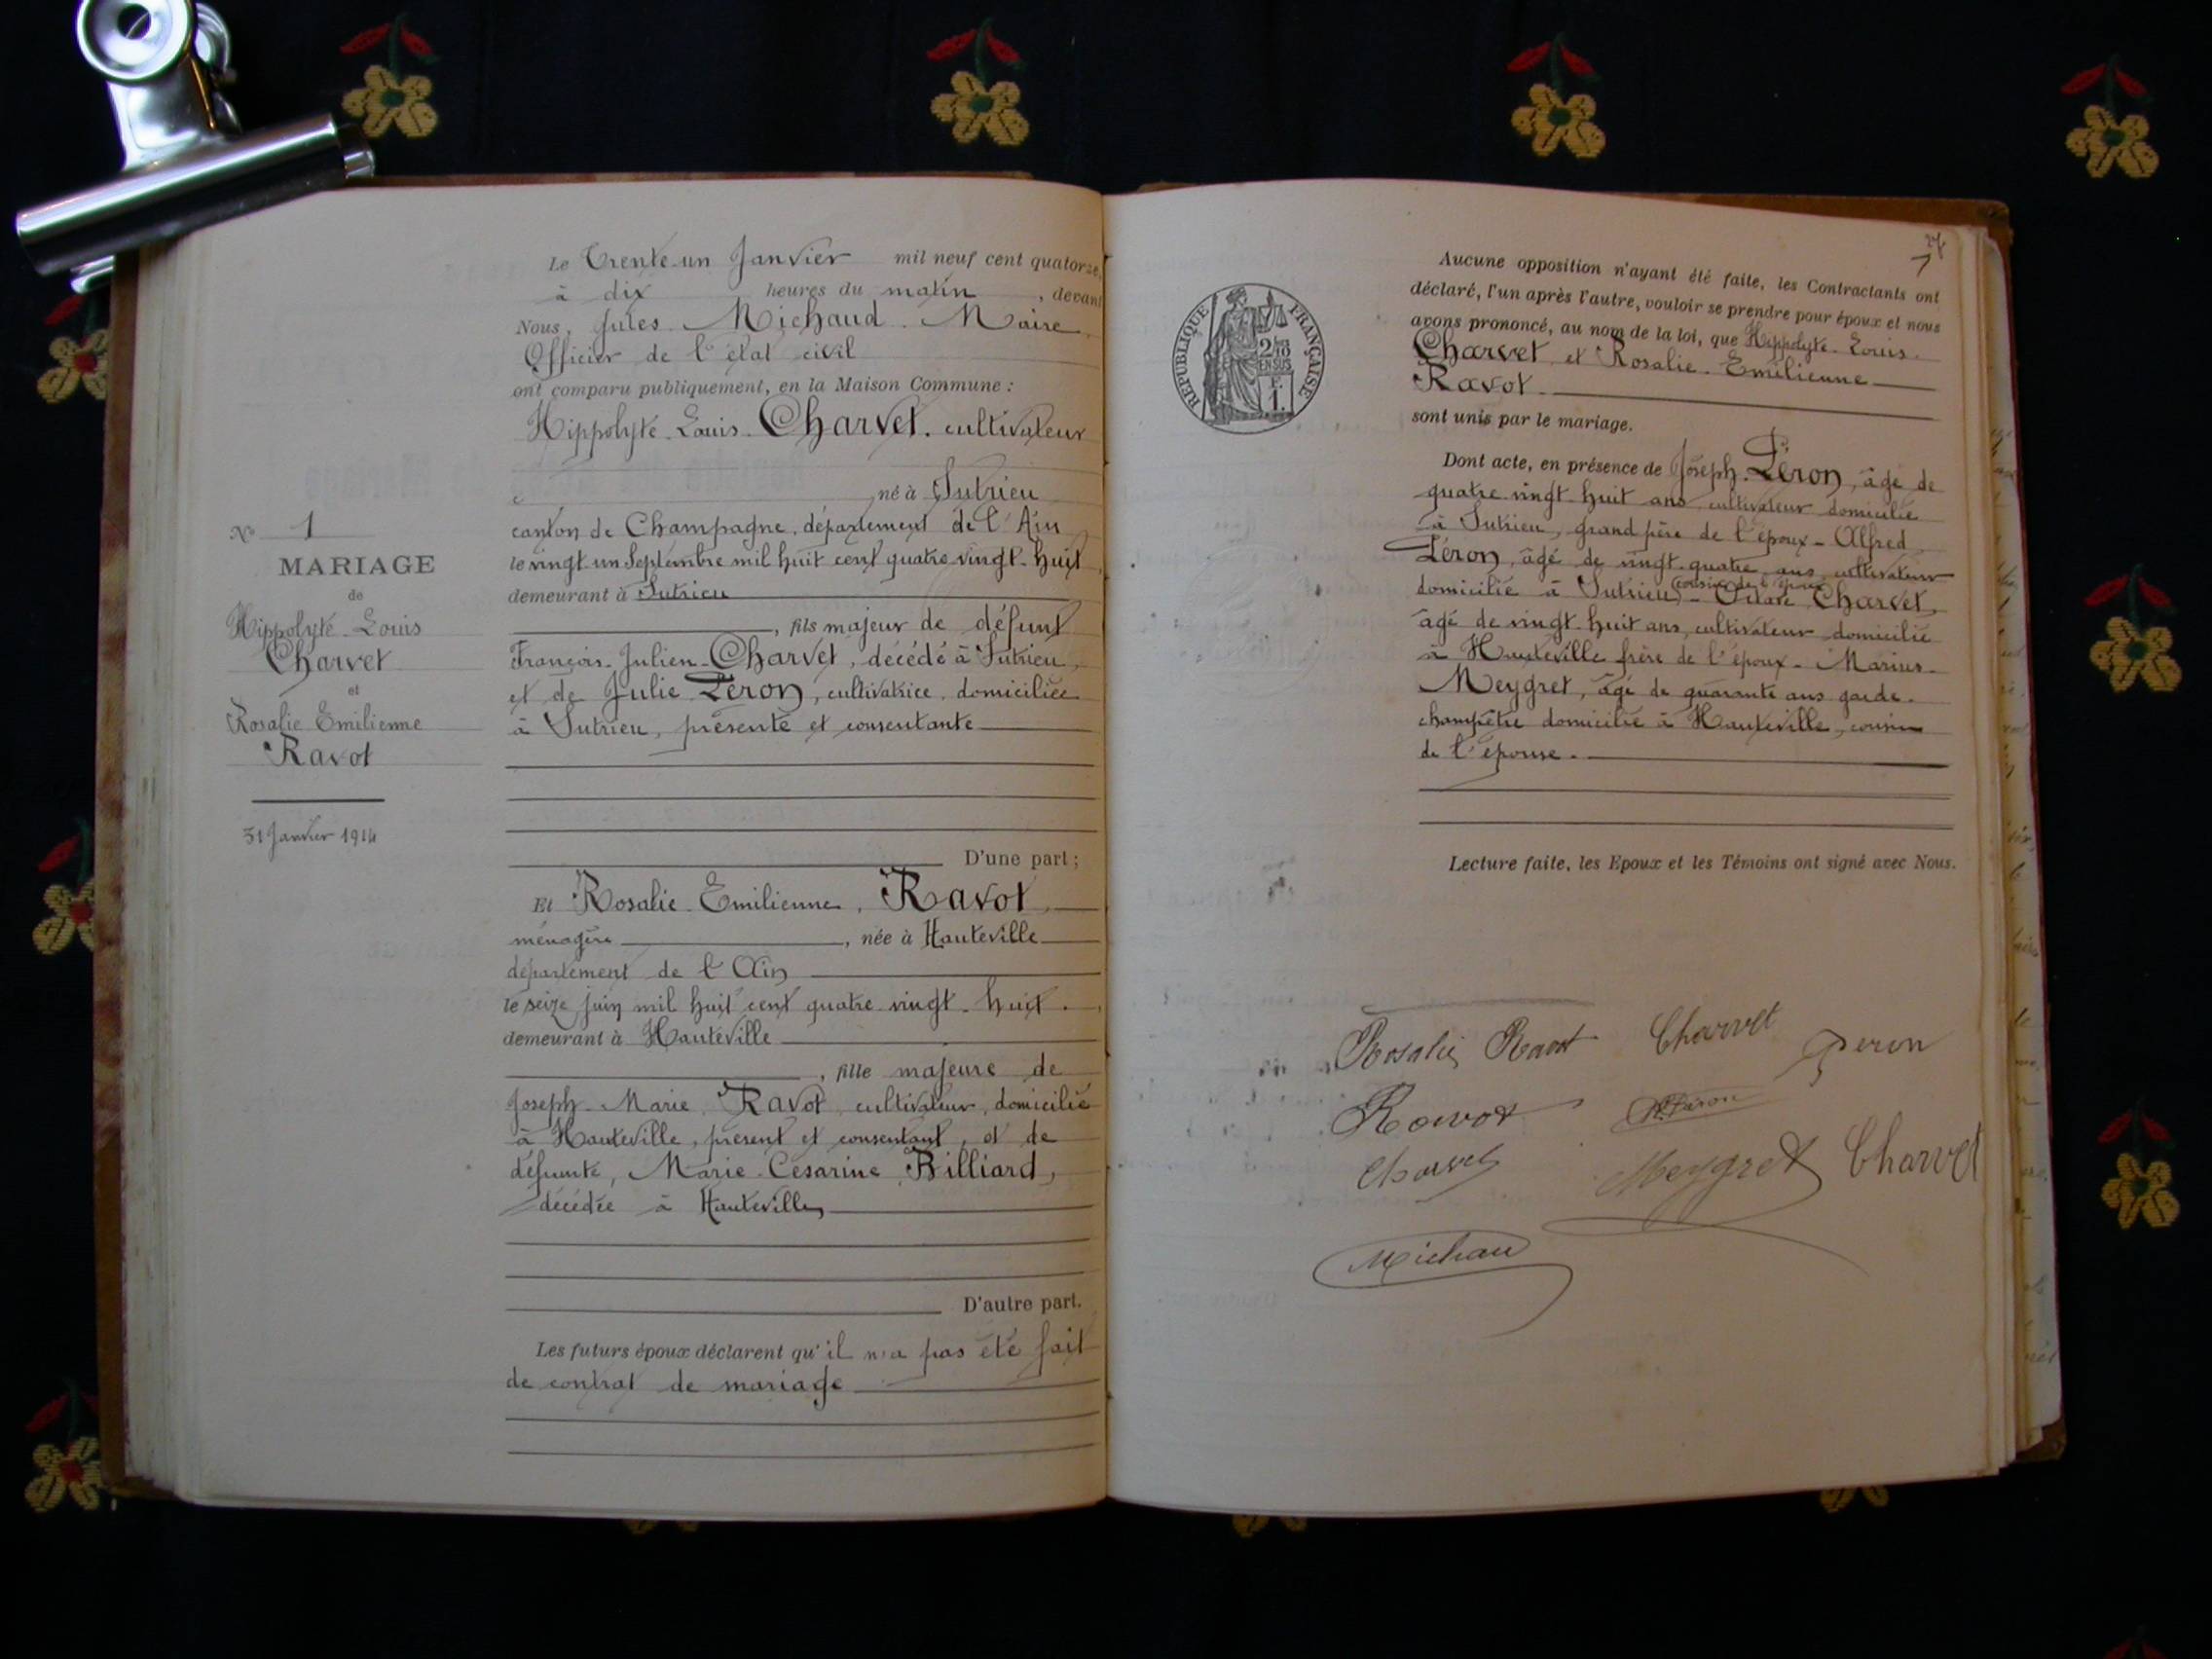 Le Trente-un Janvier mil neuf cent quatorze,
à dix heures du matin, devant
Nous, Jules Michaud Maire
Officier de l'état civil
ont comparu publiquement, en la Maison Commune :
Hippolyte-Louis Charvet. cultivateur
né à Sutrieu
canton de Champagne, département de l'Ain
le vingt un Septembre mil huit cent quatre vingt-huit,
demeurant à Sutrieu
, fils majeur de défunt
François-Julien-Charvet, décédé à Sutrieu,
et de Julie Péron, cultivatrice, domiciliée
à Sutrieu, présente et consentante
D'une part ;
Et Rosalie-Emilienne, Ravot,
ménagère, née à Hauteville
département de l'Ain
le seize juin mil huit cent quatre vingt-huit.
demeurant à Hauteville
, fille majeure de
Joseph-Marie Ravot, cultivateur, domicilié
à Hauteville, présent et consentant, et de
défunte, Marie-Césarine Billiard,
décédée à Hauteville
D'autre part.
Les futurs époux déclarent qu'il n'a pas été fait
de contrat de mariage
N° 1
MARIAGE
de
Hippolyte-Louis
Charvet
et
Rosalie Emilienne
Ravot
31 Janvier 1914
RÉPUBLIQUE FRANÇAISE
2/10
EN SUS
F.
1.
Aucune opposition n'ayant été faite, les Contractants ont
déclaré, l'un après l'autre, vouloir se prendre pour époux et nous
avons prononcé, au nom de la loi, que Hippolyte-Louis
Charvet et Rosalie-Emilienne
Ravot
sont unis par le mariage.
Dont acte, en présence de Joseph Péron, âgé de
quatre-vingt-huit ans, cultivateur domicilié
à Sutrieu, grand père de l'époux - Alfred
Péron, âgé de vingt-quatre ans, cultivateur
cousin de l'époux
domicilié à Sutrieu - Octave Charvet,
âgé de vingt-huit ans, cultivateur domicilié
à Hauteville frère de l'époux - Marius
Meygret, âgé de quarante ans garde-
champêtre domicilié à Hauteville, cousin
de l'épouse.
Lecture faite, les Epoux et les Témoins ont signé avec Nous.
Rosalie Ravot Charvet Peron
Ravot Péron
Charvet Meygret Charvet
Michau